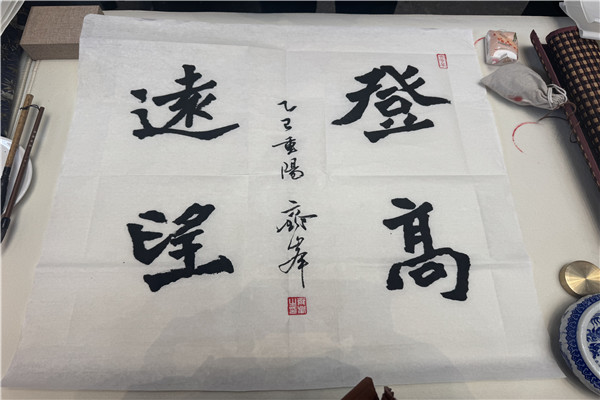 登高
遠望
乙巳重陽 峯